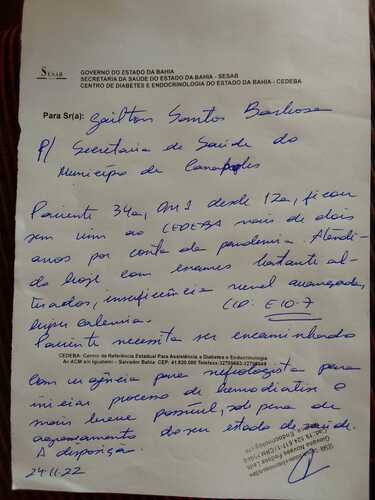 SESAB
GOVERNO DO ESTADO DA BAHIA
SECRETARIA DA SAÚDE DO ESTADO DA BAHIA - SESAB
CENTRO DE DIABETES E ENDOCRINOLOGIA DO ESTADO DA BAHIA - CEDEBA
Para Sr(a): Zailton Santos Barbosa
P/ Secretaria de Saúde do
Município de Canapolis
Paciente 34a, DM1 desde 12a, ficou
sem vim ao CEDEBA mais de dois
anos por conta da pandemia. Atendi-
do hoje com exames bastante al-
terados, insuficiência renal avançada,
hipercalemia. CID: E10-7
Paciente necessita ser encaminhado
CEDEBA: Centro de Referência Estadual Para Assistência a Diabetes e Endocrinologia
Av ACM s/n Iguatemi - Salvador Bahia CEP: 41.820.000 Telefone:
com urgência para nefrologista para
iniciar processo de hemodialise o
mais breve possível, sob pena de
agravamento do seu estado de saúde.
A disposição.
24.11.22